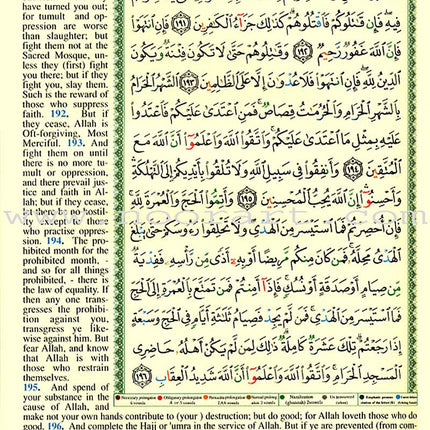 have turned you out;
for tumult and op-
pression are worse
than slaughter; but
fight them not at the
Sacred Mosque, un-
less they (first) fight
you there; but if they
fight you, slay them.
Such is the reward of
those who suppress
faith. 192. But if
they cease, Allah is
Oft-forgiving, Most
Merciful. 193. And
fight them on until
there is no more tu-
mult or oppression,
and there prevail jus-
tice and faith in Al-
lah; but if they cease,
let there be no hostil-
ity except to those
who practise oppres-
sion. 194. The pro-
hibited month for the
prohibited month, -
and so for all things
prohibited, - there is
the law of equality. If
then any one trans-
gresses the prohibi-
tion against you,
transgress ye like-
wise against him. But
fear Allah, and know
that Allah is with
those who restrain
themselves.
195. And spend of
your substance in the
cause of Allah, and
make not your own hands contribute to (your ) destruction; but do good; for Allah loveth those who do
good. 196. And complete the Hajj or 'umra in the service of Allah. But if ye are prevented (from com-
فِيهِ فَإِن قَٰتَلُوكُمْ فَٱقْتُلُوهُمْ كَذَٰلِكَ جَزَآءُ ٱلْكَٰفِرِينَ ﴿١٩١﴾ فَإِنِ ٱنتَهَوْا۟
فَإِنَّ ٱللَّهَ غَفُورٌ رَّحِيمٌ ﴿١٩٢﴾ وَقَٰتِلُوهُمْ حَتَّىٰ لَا تَكُونَ فِتْنَةٌ وَيَكُونَ
ٱلدِّينُ لِلَّهِ فَإِنِ ٱنتَهَوْا۟ فَلَا عُدْوَٰنَ إِلَّا عَلَى ٱلظَّٰلِمِينَ ﴿١٩٣﴾ ٱلشَّهْرُ ٱلْحَرَامُ
بِٱلشَّهْرِ ٱلْحَرَامِ وَٱلْحُرُمَٰتُ قِصَاصٌ فَمَنِ ٱعْتَدَىٰ عَلَيْكُمْ فَٱعْتَدُوا۟
عَلَيْهِ بِمِثْلِ مَا ٱعْتَدَىٰ عَلَيْكُمْ وَٱتَّقُوا۟ ٱللَّهَ وَٱعْلَمُوٓا۟ أَنَّ ٱللَّهَ مَعَ
ٱلْمُتَّقِينَ ﴿١٩٤﴾ وَأَنفِقُوا۟ فِى سَبِيلِ ٱللَّهِ وَلَا تُلْقُوا۟ بِأَيْدِيكُمْ إِلَى ٱلتَّهْلُكَةِ
وَأَحْسِنُوٓا۟ إِنَّ ٱللَّهَ يُحِبُّ ٱلْمُحْسِنِينَ ﴿١٩٥﴾ وَأَتِمُّوا۟ ٱلْحَجَّ وَٱلْعُمْرَةَ لِلَّهِ
فَإِنْ أُحْصِرْتُمْ فَمَا ٱسْتَيْسَرَ مِنَ ٱلْهَدْىِ وَلَا تَحْلِقُوا۟ رُءُوسَكُمْ حَتَّىٰ بَلُغَ
ٱلْهَدْىُ مَحِلَّهُۥ فَمَن كَانَ مِنكُم مَّرِيضًا أَوْ بِهِۦٓ أَذًى مِّن رَّأْسِهِۦ فَفِدْيَةٌ
مِّن صِيَامٍ أَوْ صَدَقَةٍ أَوْ نُسُكٍ فَإِذَآ أَمِنتُمْ فَمَن تَمَتَّعَ بِٱلْعُمْرَةِ إِلَى ٱلْحَجِّ
فَمَا ٱسْتَيْسَرَ مِنَ ٱلْهَدْىِ فَمَن لَّمْ يَجِدْ فَصِيَامُ ثَلَٰثَةِ أَيَّامٍ فِى ٱلْحَجِّ وَسَبْعَةٍ
إِذَا رَجَعْتُمْ تِلْكَ عَشَرَةٌ كَامِلَةٌ ذَٰلِكَ لِمَن لَّمْ يَكُنْ أَهْلُهُۥ حَاضِرِى
ٱلْمَسْجِدِ ٱلْحَرَامِ وَٱتَّقُوا۟ ٱللَّهَ وَٱعْلَمُوٓا۟ أَنَّ ٱللَّهَ شَدِيدُ ٱلْعِقَابِ ﴿١٩٦﴾